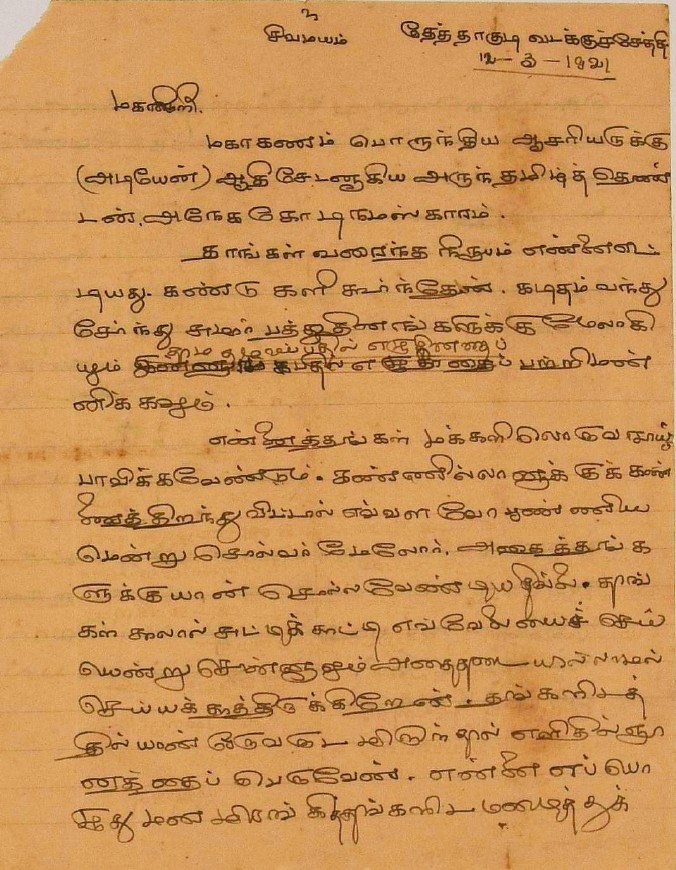 உ
சிவமயம் தேத்தாகுடி வடக்குச்சேத்தி
12-3-1921
மகாஸ்ரீ
மகாகணம் பொருந்திய ஆசரியருக்கு
(அடியேன்) ஆதிசேடனாகிய அருந்தமிழ்த் தொண்
டன். அநேக கோடி நமஸ்காரம்.
தாங்கள் வரைந்த நிருபம் என்னைகிட்
டியது. கண்டு களி கூர்ந்தேன். கடிதம் வந்து
சேர்ந்து சுமார் பத்து தினங்களுக்கு மேலாகி
யும் பற்றி மன்
னிக்கவும்.
என்னைத்தாங்கள் மக்களிலொருவனாய்
பாவிக்கவேண்டும். கண்ணில்லானுக்குக் கண்
ணைத் திறந்து விட்டால் எவ்வளவோ புண்ணிய
மென்று சொல்வர் மேலோர். அதைத் தாங்க
ளுக்கு யான் சொல்லவேண்டியதில்லை. தாங்
கள் காலால் சுட்டிக் காட்டி எவ்வேலையைச் செய்
யென்று சொன்னாலும் அதைதடையில்லாமல்
செய்யக் காத்திருக்கிறேன். தங்களிடத்
தில் யான் ஒருவருட மிருந்தால் எளிதில் ஞா
னத்தைப் பெருவேன். என்னை எப்பொ
ழுது மன மிரங்கி தாங்களிட மழைத்துக்